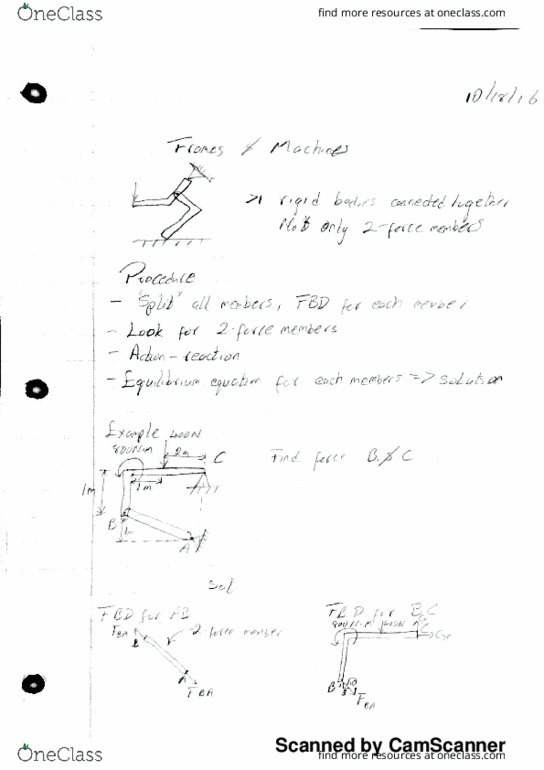 OneClass
find more resources at oneclass.com
10/18/16
Frames & Machines
>1 rigid bodies connected together
Not only 2-force members
Procedure
- "Split" all members, FBD for each member
- Look for 2-force members
- Action-reaction
- Equilibrium equation for each members => solution
Example 400N
800Nm 2m C
Find force B & C
1m
1m
B 1m
A
Sol
FBD for AB
FBD for BC
FBA 2-force member
800N.m 400N
B
A
B
FBA
FBA
Scanned by CamScanner
OneClass
find more resources at oneclass.com